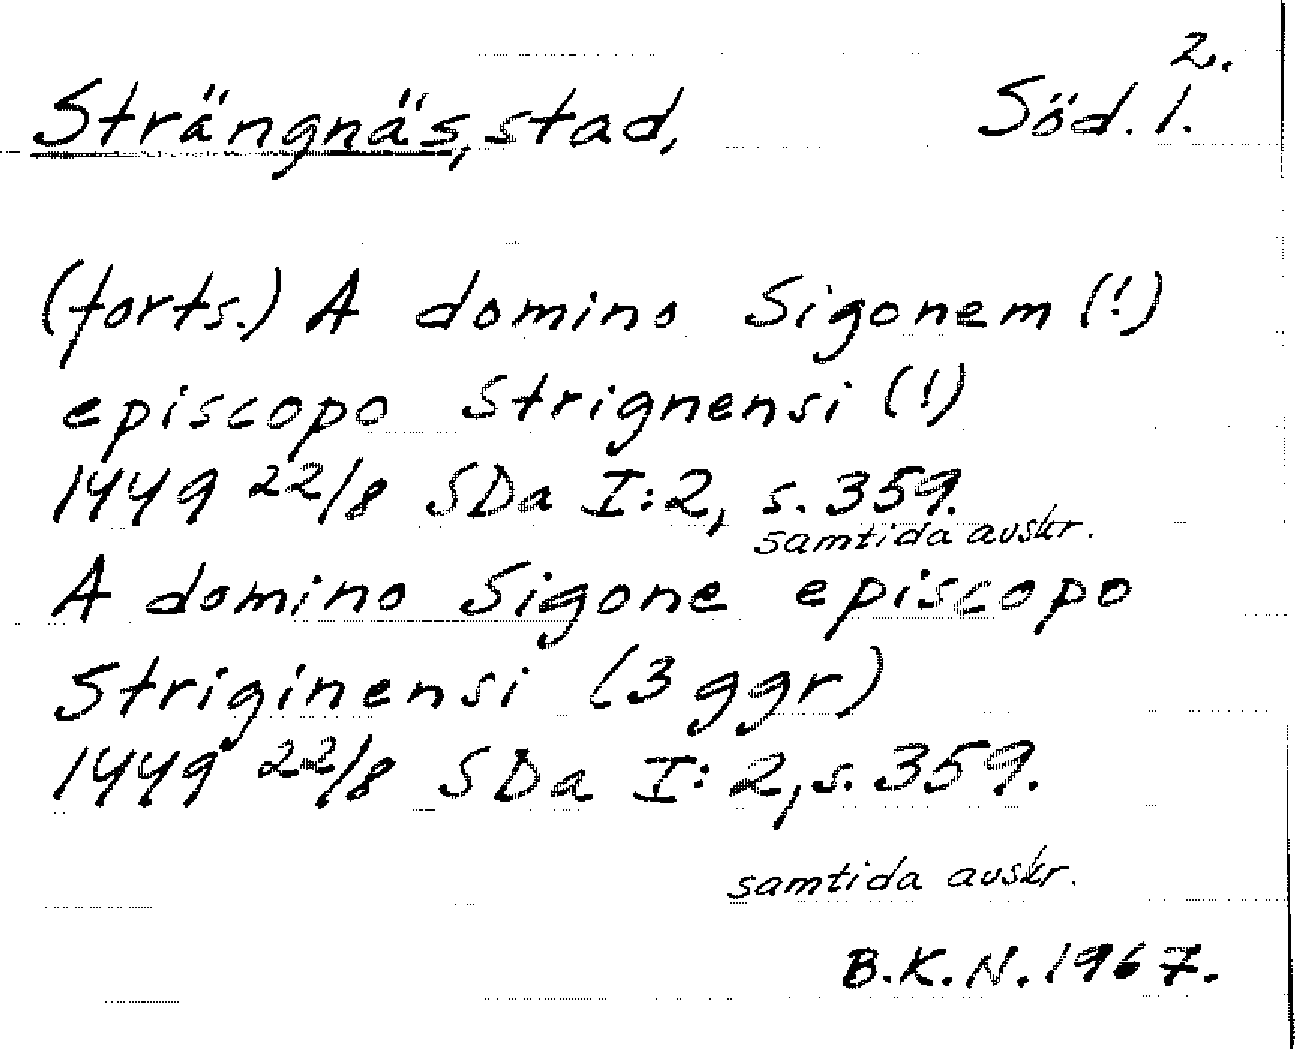 2.
Strängnäs, stad, Söd. l.
(forts.) A domino Sigonem (!)
episcopo Strignensi (!)
1449 22/8 SDa I:2, s. 359.
samtida avskr.
A domino Sigone episcopo
Striginensi (3 ggr)
1449 22/8 SDa I:2, s. 359.
samtida avskr.
B.K.N. 1967.